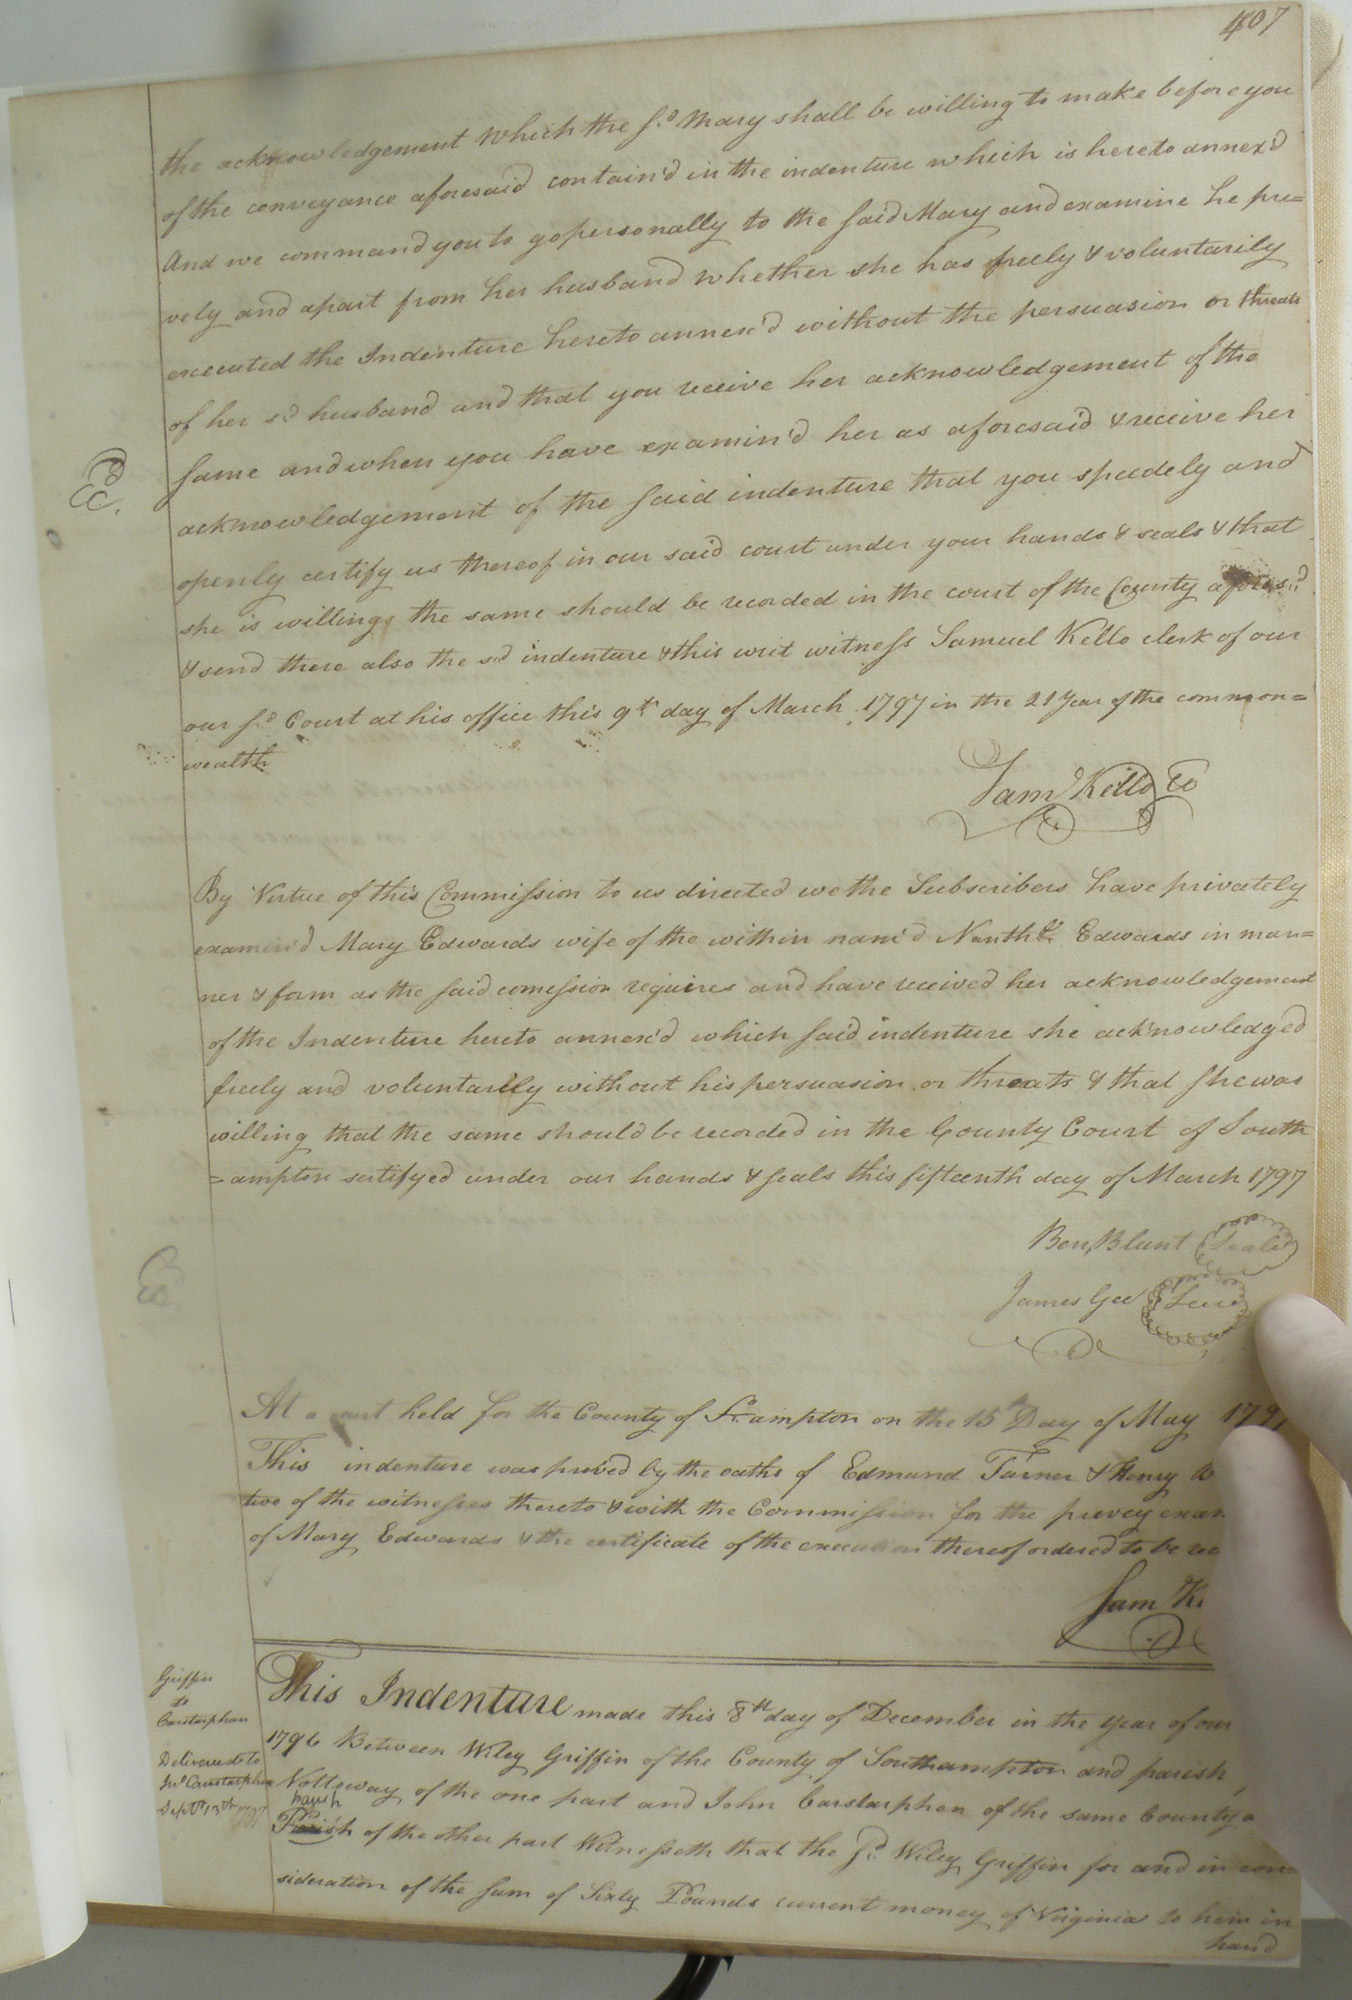 407
the acknowledgement which the sd. Mary shall be willing to make before you
of the conveyance aforesaid contain'd in the indenture which is hereto annex'd
And we command you to go personally to the said Mary and examine he pri=
vely and apart from her husband whether she has freely & voluntarily
executed the Indenture hereto annex'd without the persuasion or threats
of her sd. husband and that you receive her acknowledgement of the
same and when you have examin'd her as aforesaid & receive her
acknowledgement of the said indenture that you speedely and
openly certify us thereof in our said court under your hands & seals & that
she is willing the same should be recorded in the court of the County aforesd.
& send there also the sd indenture & this writ witness Samuel Kello clerk of our
our sd. Court at his office this 9th day of March 1797 in the 21 Year of the common=
wealth
Exd.
Saml Kello CC
By Virtue of this Commission to us directed we the Subscribers have privately
examin'd Mary Edwards wife of the within nam'd Edwards in man=
ner & form as the said comession requires and have received her acknowledgement
of the Indenture hereto annex'd which said indenture she acknowledged
freely and voluntarily without his persuasion or threats & that she was
willing that the same should be recorded in the County Court of South
=ampton sertifyed under our hands & seals this fifteenth day of March 1797
Ben Blunt Seale
James Gee Seal
At a court held for the County of So.ampton on the 15th Day of May 179
This indenture was proved by the oaths of Edmund Turner & Henry
two of the witnesses thereto & with the Commission for the privey exam
of Mary Edwards & the certificate of the execution thereof ordered to be rec
Sam Ke
Griffin
to
Carstarphan
Delivered to
Jno Carstarphen
Septr 13th 1797
This Indenture made this 8th day of December in the year of our
1796 Between Wiley Griffin of the County of Southampton and parish
Nottoway of the one part and John Carstarphen of the same County a
parish
Parish of the other part Witnesseth that the sd. Wiley Griffin for and in con
sideration of the sum of Sixty Pounds current money of Virginia to him in
hand